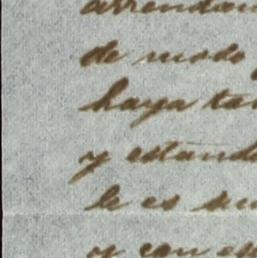 arrendam
de modo
haya ta
y estand
le es
y con es